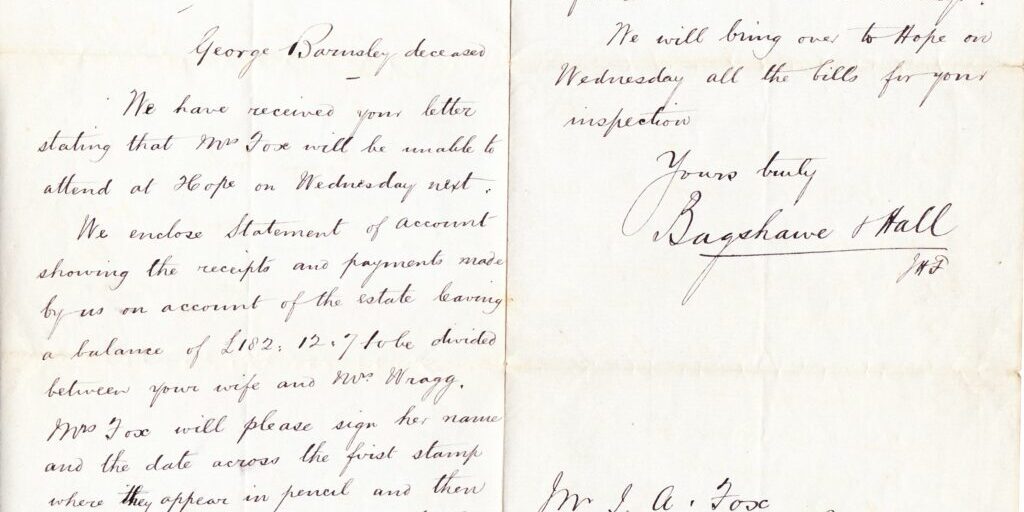 George Barnsley deceased
We have received your letter
stating that Mrs Fox will be unable to
attend at Hope on Wednesday next.
We enclose Statement of account
showing the receipts and payments made
by us on account of the estate leaving
a balance of £182. 12. 7 to be divided
between your wife and Mrs Wragg.
Mrs Fox will please sign her name
and the date across the first stamp
where they appear in pencil and then
We will bring over to Hope on
Wednesday all the bills for your
inspection
Yours truly
Bagshawe & Hall
JHF
Mr J. A. Fox